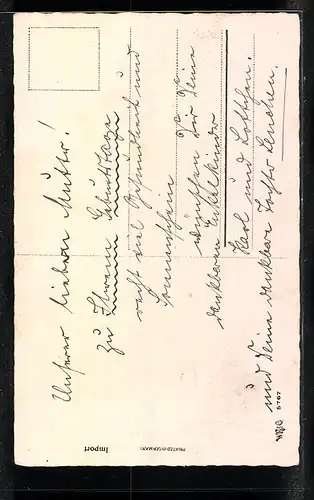 Unserer lieben Mutter!
zu Ihrem Geburtstage
recht viel Gesundheit und
Sonnenschein
wünschen Dir Deine
dankbaren Enkelkinder
Karl und Lottchen.
und Deine dankbare Tochter Lenchen.
Import
PRINTED IN GERMANY
6767